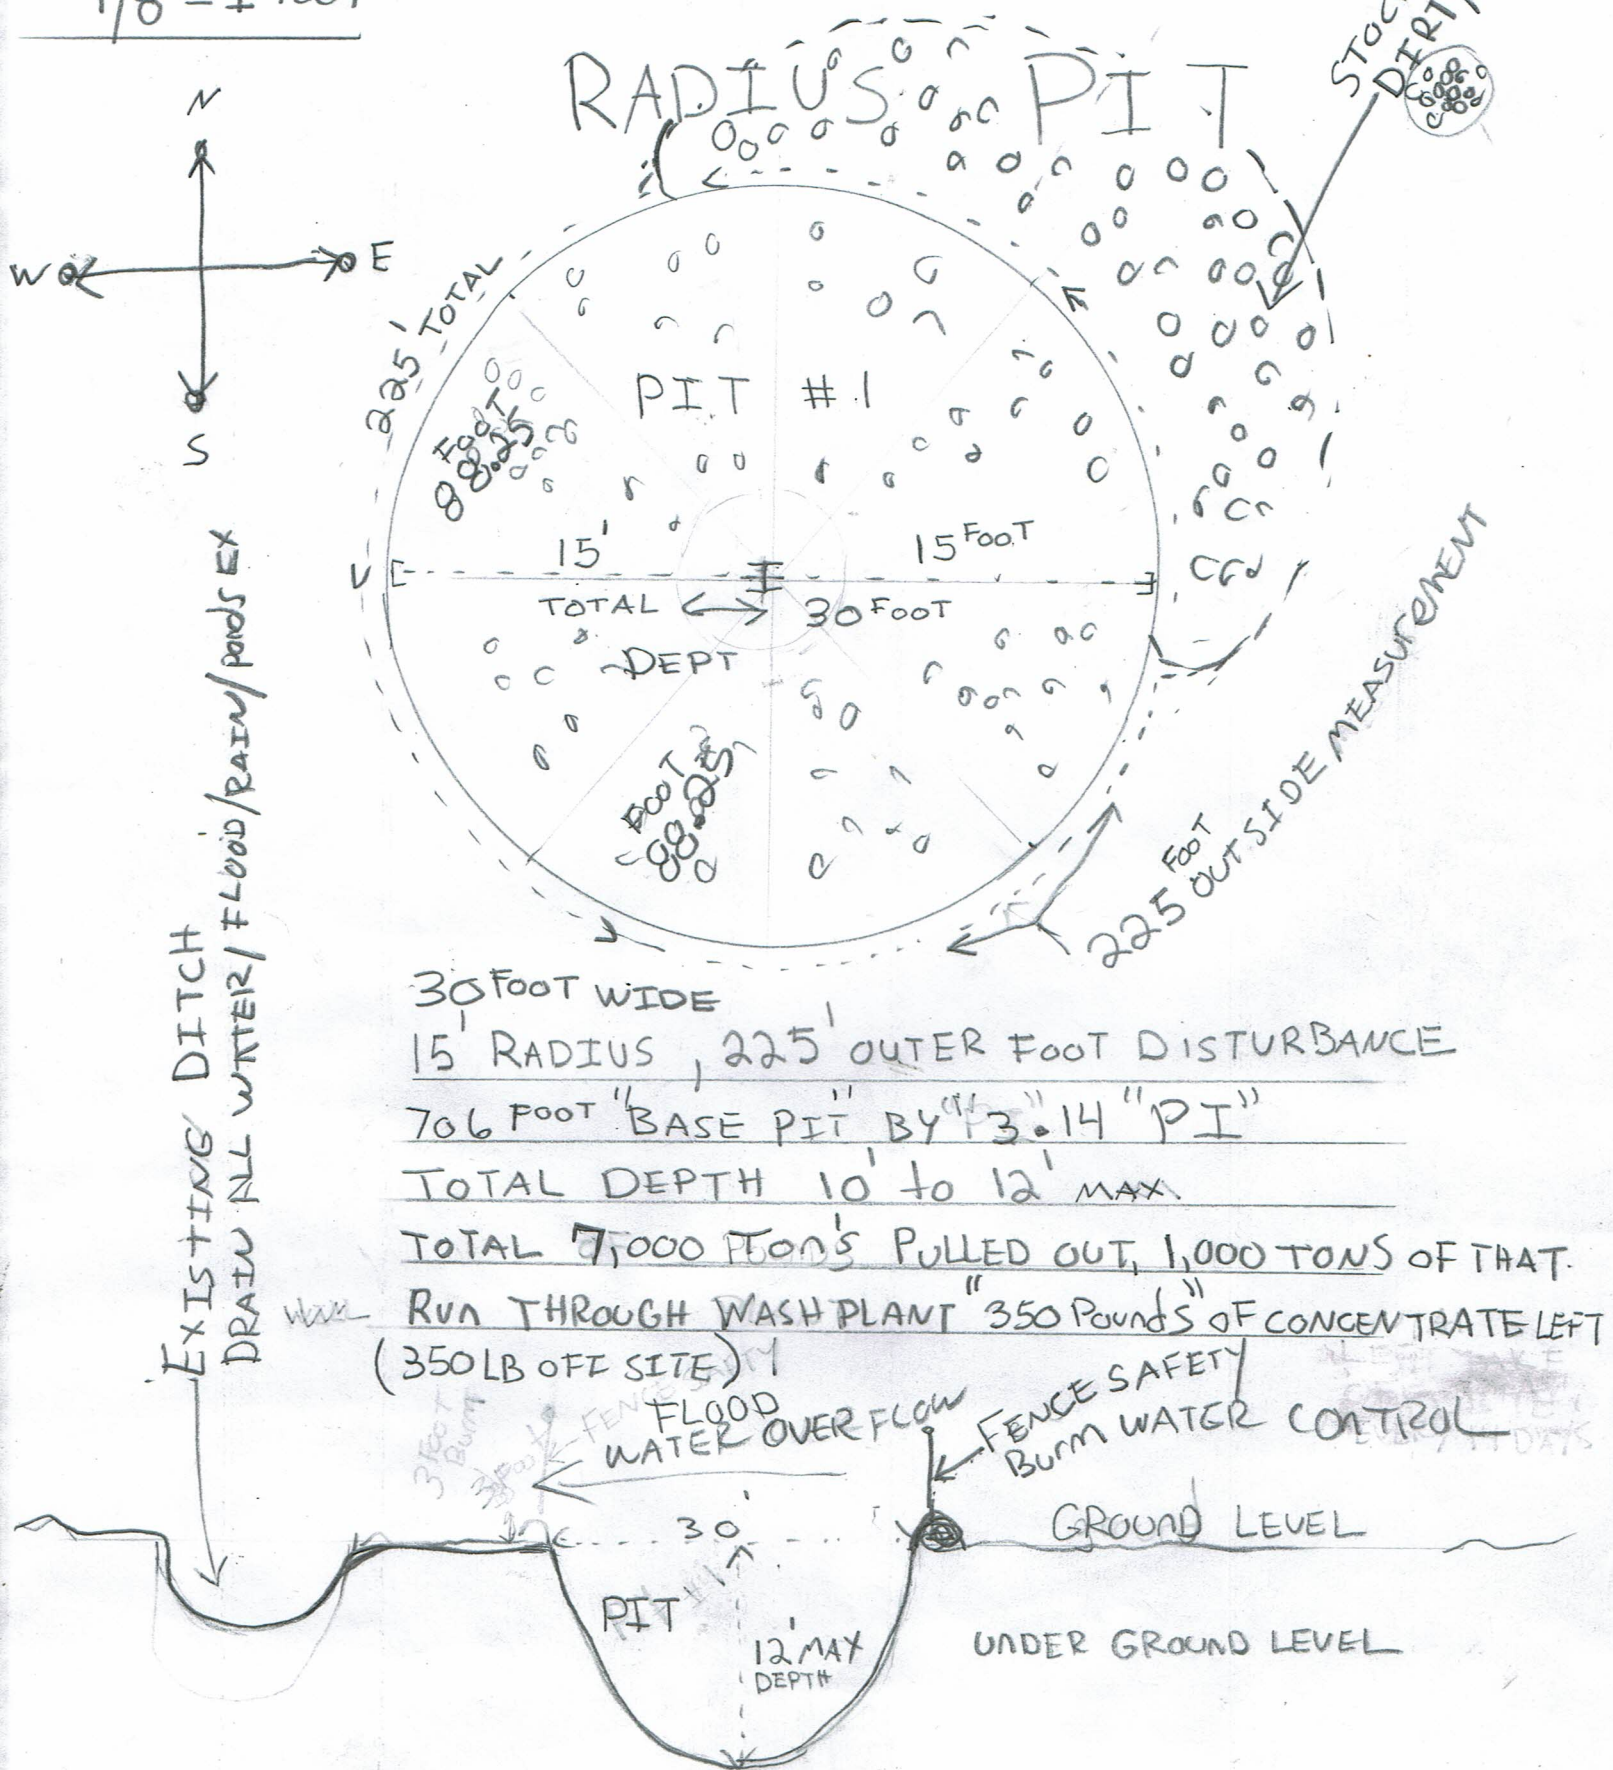 1/8 = 1 FOOT
RADIUS PIT
STOC
DIRT
N
W
E
S
225' TOTAL
PIT #1
FOOT
88.25
15'
15 FOOT
TOTAL
30 FOOT
DEPT
FOOT
88.25
225 FOOT OUTSIDE MEASUREMENT
EXISTING DITCH
DRAIN ALL WATER/FLOOD/RAIN/PONDS EX
30 FOOT WIDE
15' RADIUS, 225' OUTER FOOT DISTURBANCE
706 FOOT "BASE PIT" BY "3.14 "PI"
TOTAL DEPTH 10' to 12' MAX.
TOTAL 7,000 Ton's PULLED OUT, 1,000 TONS OF THAT.
Run THROUGH WASH PLANT "350 Pounds" OF CONCENTRATE LEFT
(350 LB OFF SITE)
FLOOD
WATER OVER FLOW
FENCE SAFETY
Burm WATER CONTROL
3 FOOT
Burm
FENCE SAFETY
30'
GROUND LEVEL
PIT
12' MAX
DEPTH
UNDER GROUND LEVEL